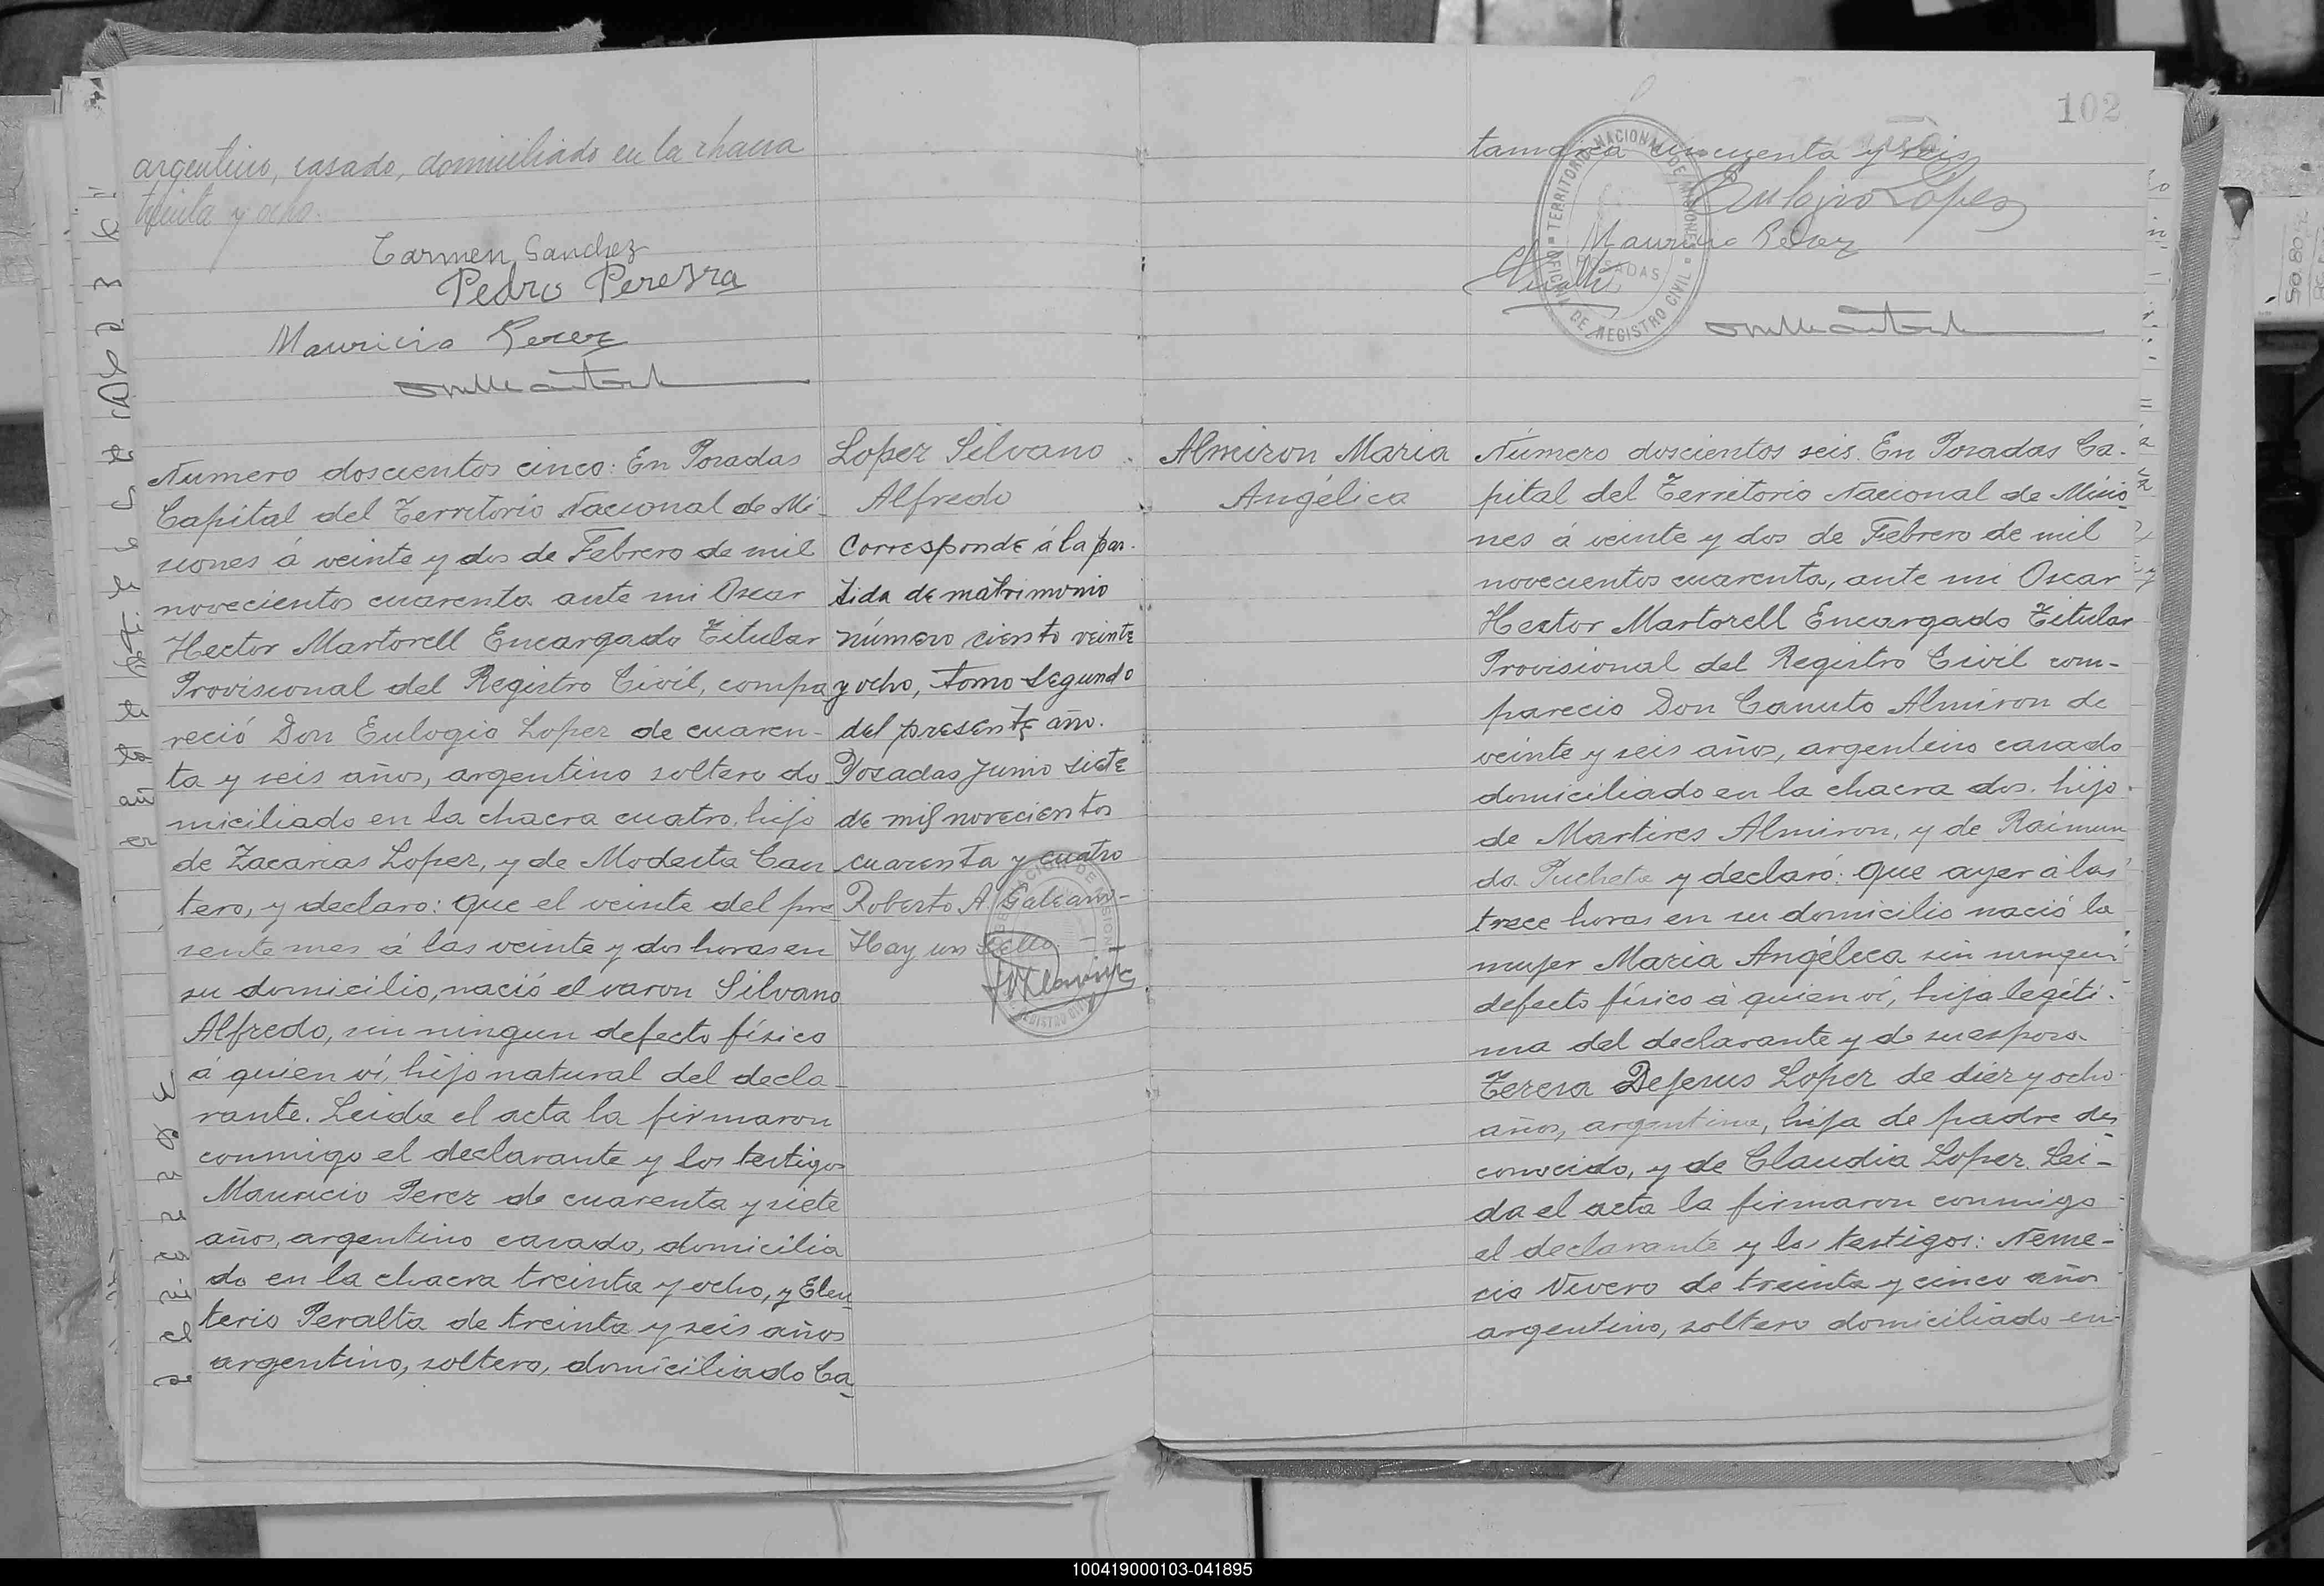 argentino, casado, domiciliado en la chacra
treinta y ocho.
Carmen Sanchez
Pedro Pereyra
Mauricio Perez
Numero doscientos cinco: En Posadas
Capital del Territorio Nacional de Mi-
siones á veinte y dos de Febrero de mil
novecientos cuarenta ante mi Oscar
Hector Martorell Encargado Titular
Provisional del Registro Civil, compa
reció Don Eulogio Lopez de cuaren-
ta y seis años, argentino soltero do-
miciliado en la chacra cuatro, hijo
de Zacarias Lopez, y de Modesta Can
tero, y declaro: Que el veinte del pre
sente mes á las veinte y dos horas en
su domicilio, nació el varon Silvano
Alfredo, sin ningun defecto físico
á quien ví, hijo natural del decla-
rante. Leida el acta la firmaron
conmigo el declarante y los testigos
Mauricio Perez de cuarenta y siete
años, argentino casado, domicilia
do en la chacra treinta y ocho, y Eleu-
terio Peralta de treinta y seis años
argentino, soltero, domiciliado Ca-
Lopez Silvano
Alfredo
Corresponde á la par-
tida de matrimonio
número ciento veinte
y ocho, tomo segundo
del presente año.
Posadas Junio siete
de mil novecientos
cuarenta y cuatro
Roberto A. Galeano-
Hay un sello
102
tamarca cincuenta y seis
Eulojio Lopez
Mauricio Perez
TERRITORIO NACIONAL DE MISIONES
POSADAS
OFICINA DE REGISTRO CIVIL
Almeiron Maria
Angélica
Número doscientos seis. En Posadas Ca-
pital del Territorio Nacional de Misio-
nes á veinte y dos de Febrero de mil
novecientos cuarenta, ante mi Oscar
Hector Martorell Encargado Titular
Provisional del Registro Civil com-
parecio Don Canuto Almiron de
veinte y seis años, argentino casado
domiciliado en la chacra dos. hijo
de Martires Almiron, y de Raimun
da Puchete y declaró: Que ayer á las
trece horas en su domicilio nació la
mujer Maria Angéleca sin ningun
defecto físico á quien ví, hija legíti-
ma del declarante y de su esposa
Teresa Dejesus Lopez de diez y ocho
años, argentina, hija de padre des
conocido, y de Claudia Lopez. Lei-
da el acta la firmaron conmigo
el declarante y los testigos: Neme-
cio Vivero de treinta y cinco años
argentino, soltero domiciliado en
100419000103-041895